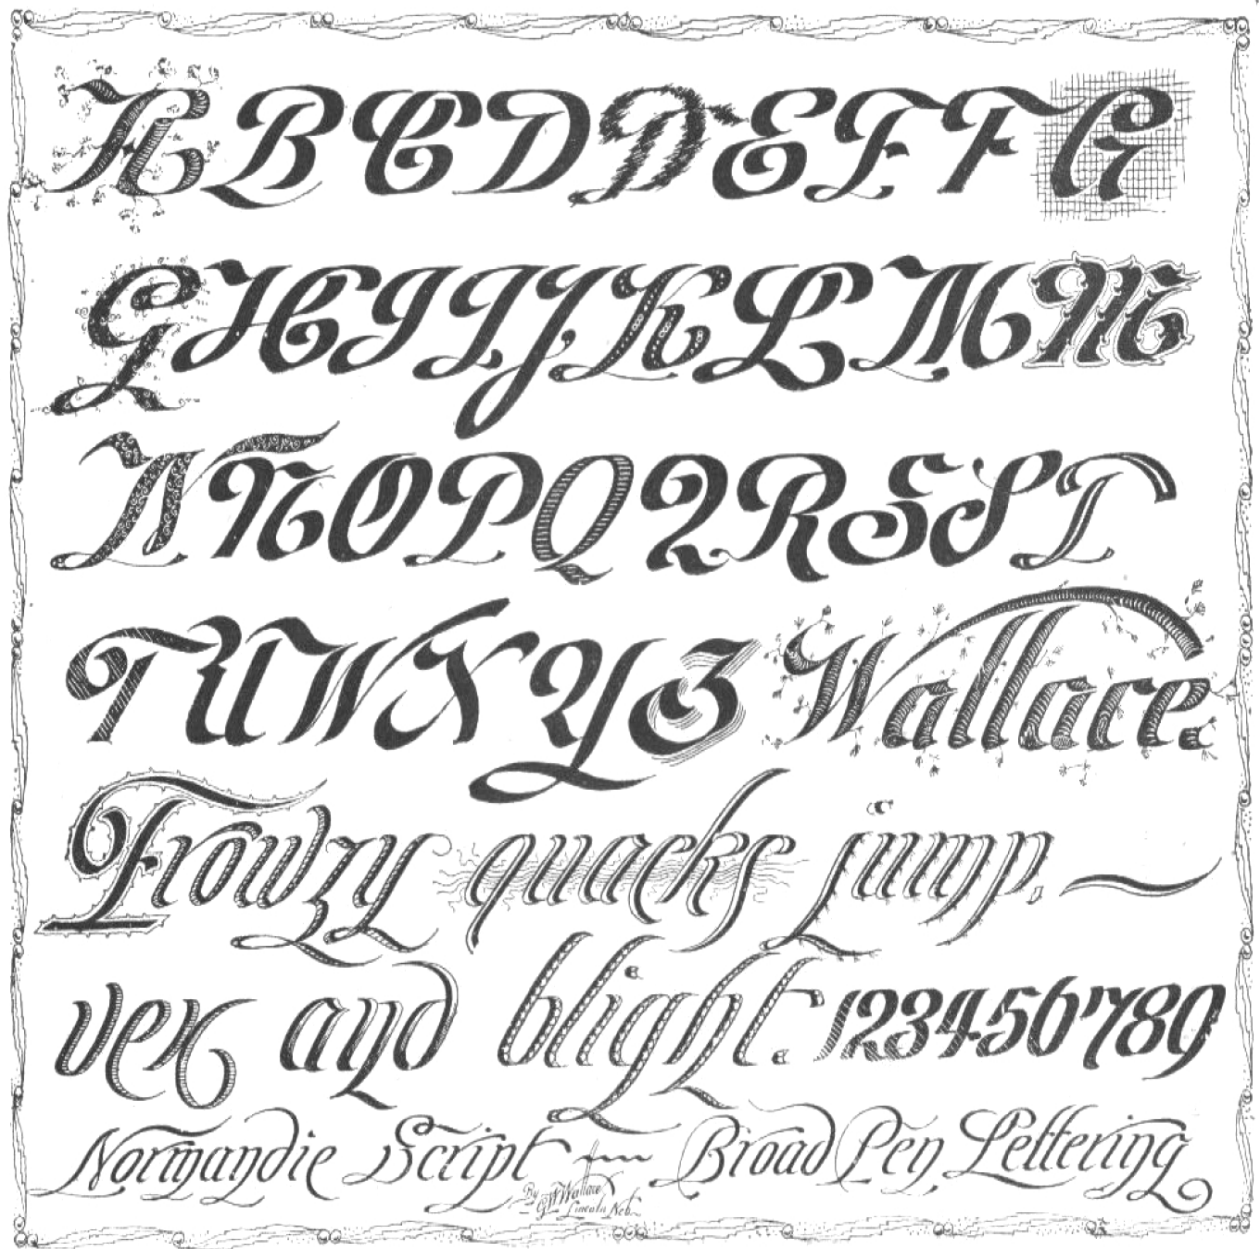 A B C D D E F F G
G H I I J K L M M
N N O P Q Q R S S T
T U W X Y Z Wallace.
Frowzy quacks jump,
vex and blight. 123456789
Normandie Script Broad Pen Lettering
By
G W Wallace
Lincoln Neb.